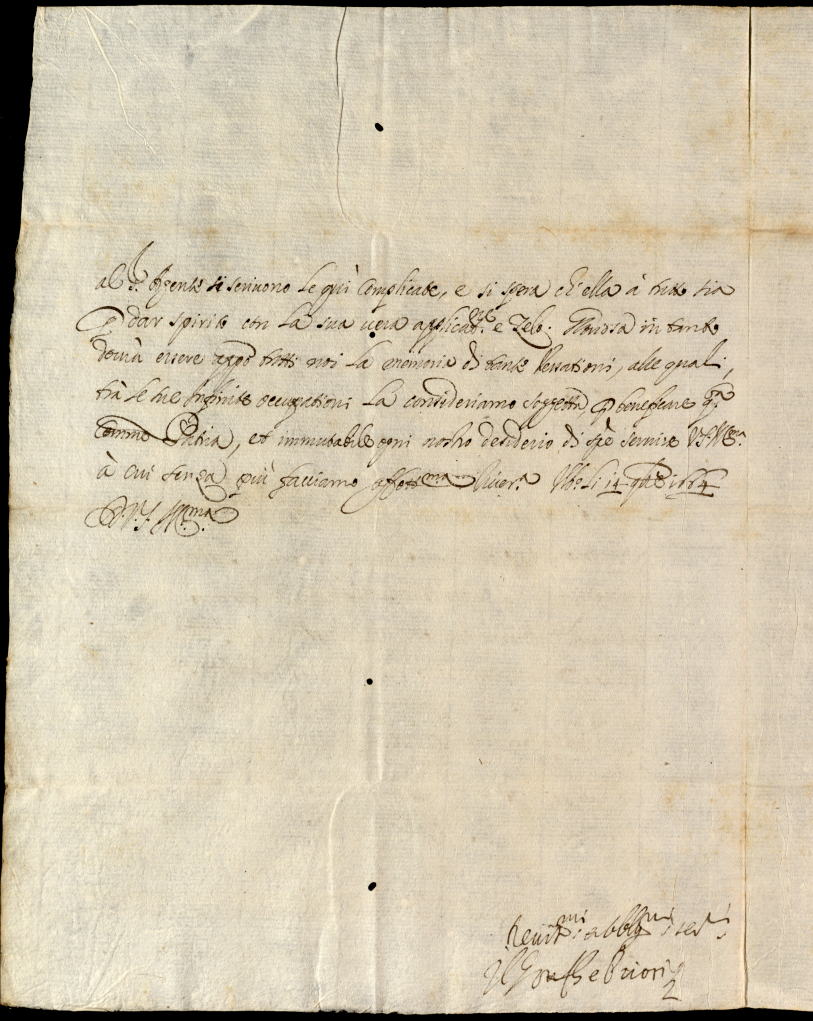 al S.r Agente si scriuono le quì Complicate, e si spera ch'ella à tutto sia
p dar spirito con la sua uera applicat.ne e Zelo. in tanto
dourà essere appo tutti noi la memoria di tante Vessationi, alle quali,
trà le sue infinite occupationi la consideriamo soggetta p beneficare q.ta
comune Patria, et immutabile ogni nostro desiderio di sẽpre seruire V.S. Ill.ma
à cui senza più facciamo affett.ma riuer.a li 14 1664
D. V. S. Ill.ma
Deuot.mi obblig.mi ser.ri
Il Gonf.re e Priori